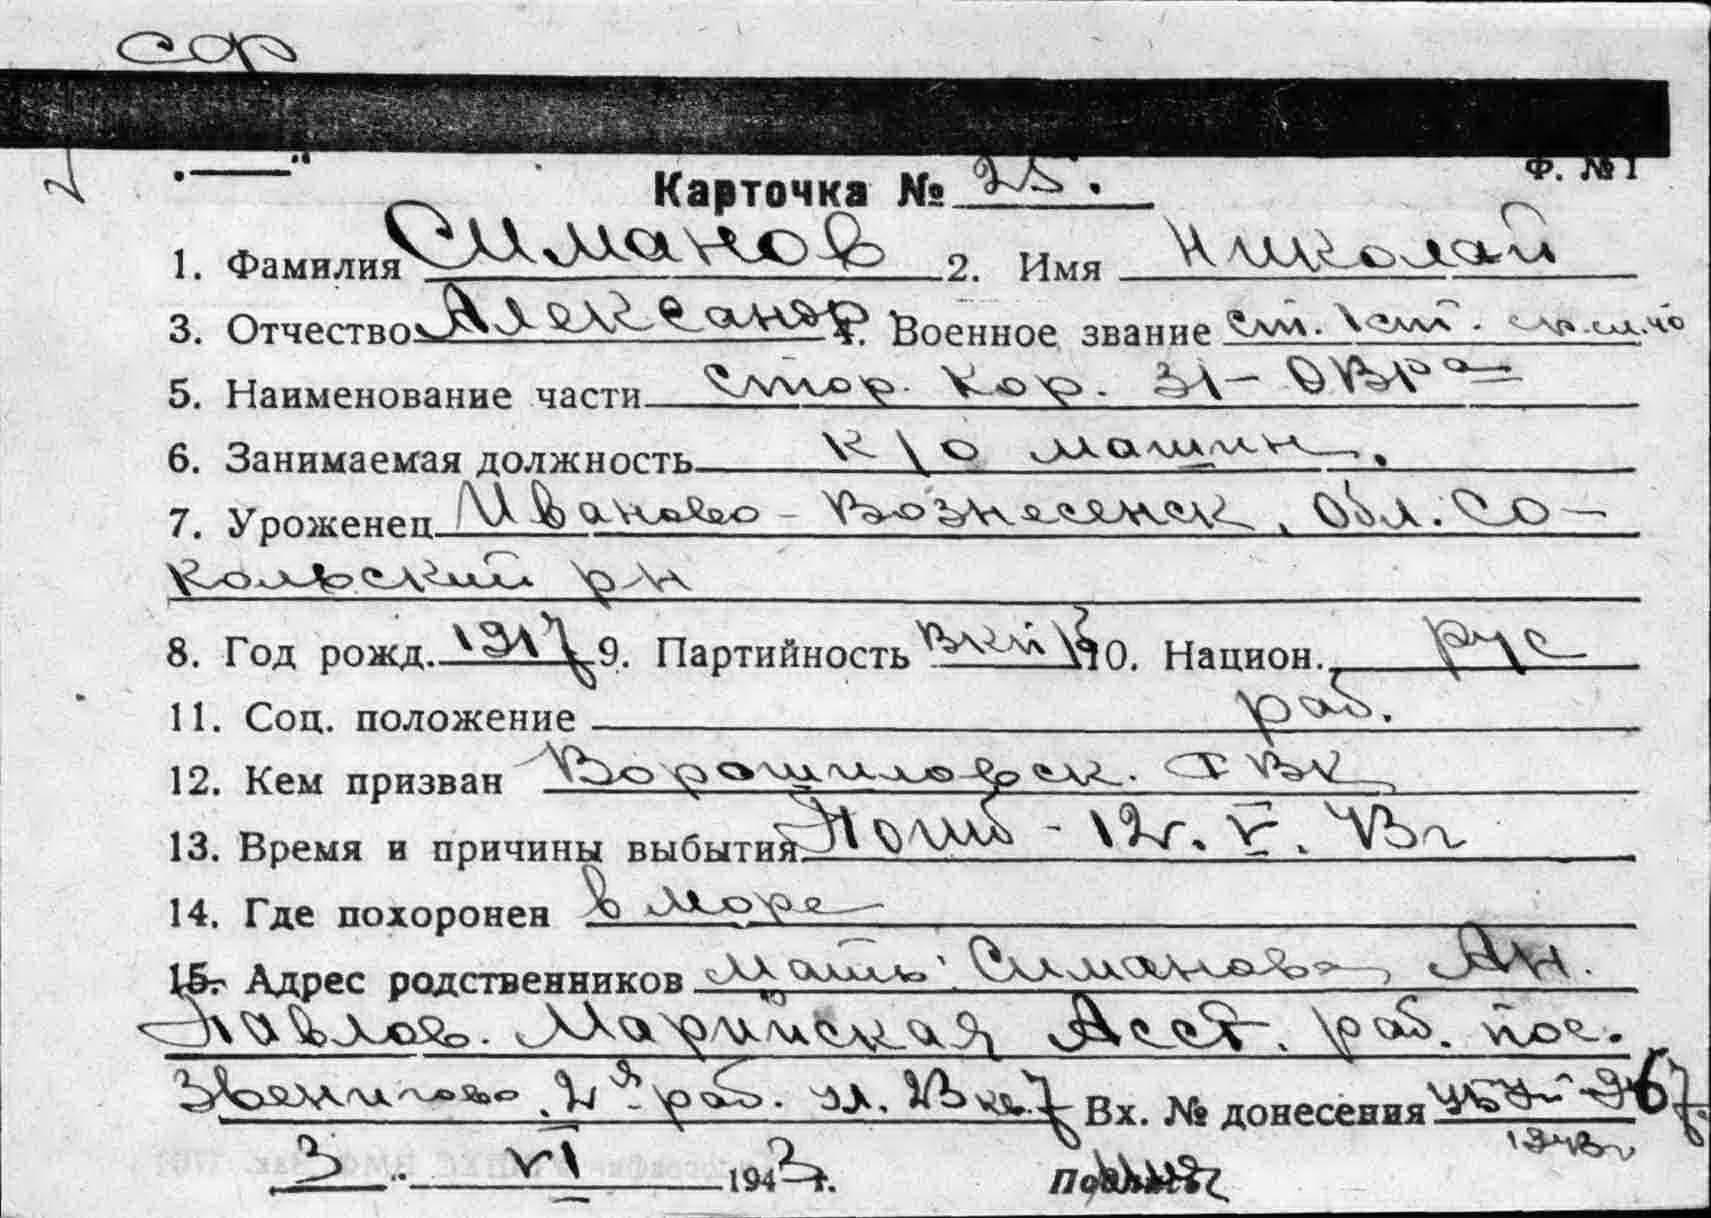 сф
Ф. № 1
Карточка № 25.
1. Фамилия Симанов 2. Имя Николай
3. Отчество Александр 4. Военное звание ст. 1 ст.
5. Наименование части Стор. Кор. 31- ОВРа
6. Занимаемая должность к/о машин.
7. Уроженец Иваново-Вознесенск, Обл. Со-
кольский рн
8. Год рожд. 1917 9. Партийность ВКП/б 10. Национ. рус
11. Соц. положение раб.
12. Кем призван Ворошиловск. ГВК
13. Время и причины выбытия Погиб - 12. V. 43г
14. Где похоронен в море
15. Адрес родственников мать Симанова Ан.
Павлов. Марийская Асср. раб. пос.
Звенигово, 2я раб. ул. 23 кв. 7 Вх. № донесения
1943г
3 " VI 1943 г. Подпись